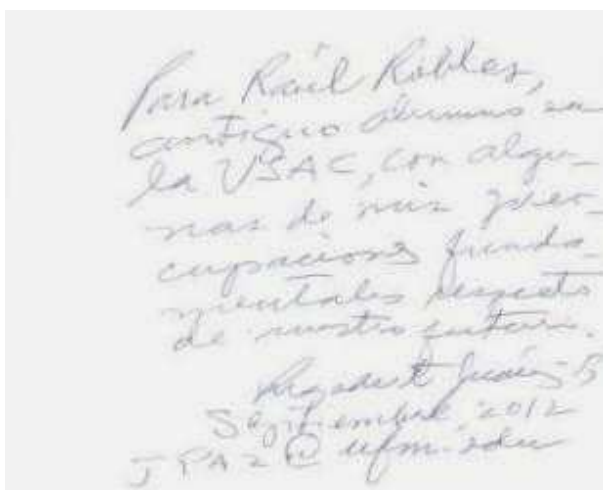 Para Raúl Robles,
antiguo alumno en
la USAC, con algu-
nas de mis preo-
cupaciones funda-
mentales respecto
de nuestro futuro.
Juárez-P
Septiembre, 2012
JPAZ@ufm.edu